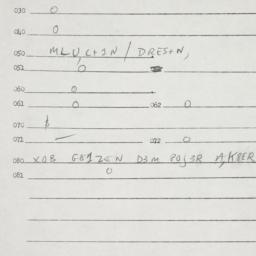 030 0
040 0
050 MLU,C+1N / DRES+N,
051 0
060 0
061 0 062 0
070 $
071 — 072 0
080 XOB GB1Z<N D3M POJ3R A,K8ER
081 0